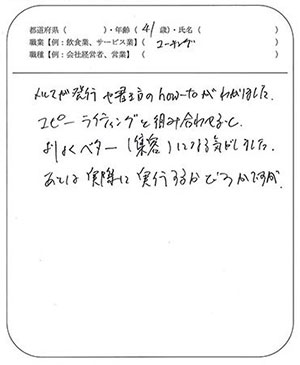 都道府県(　　　)・年齢(41歳)・氏名(　　　)
職業【例:飲食業、サービス業】(コーチング)
職種【例:会社経営者、営業】(　　　)
メルマガ発行や書き方のhow-toがわかりました。
コピーライティングと組み合わせると、
よりよくベター(集客)になる気がしました。
あとは実際に実行するかどうかですが。